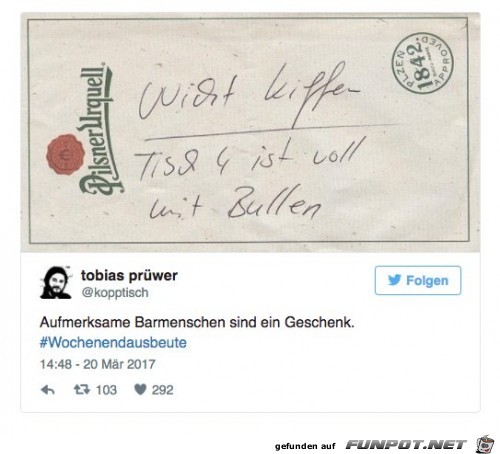 Pilsner Urquell
PLZEN
1842
APPROVED
Nicht kiffen
Tisch 4 ist voll
mit Bullen
tobias prüwer
@kopptisch
Folgen
Aufmerksame Barmenschen sind ein Geschenk.
#Wochenendausbeute
14:48 - 20 Mär 2017
103
292
gefunden auf FUNPOT.NET